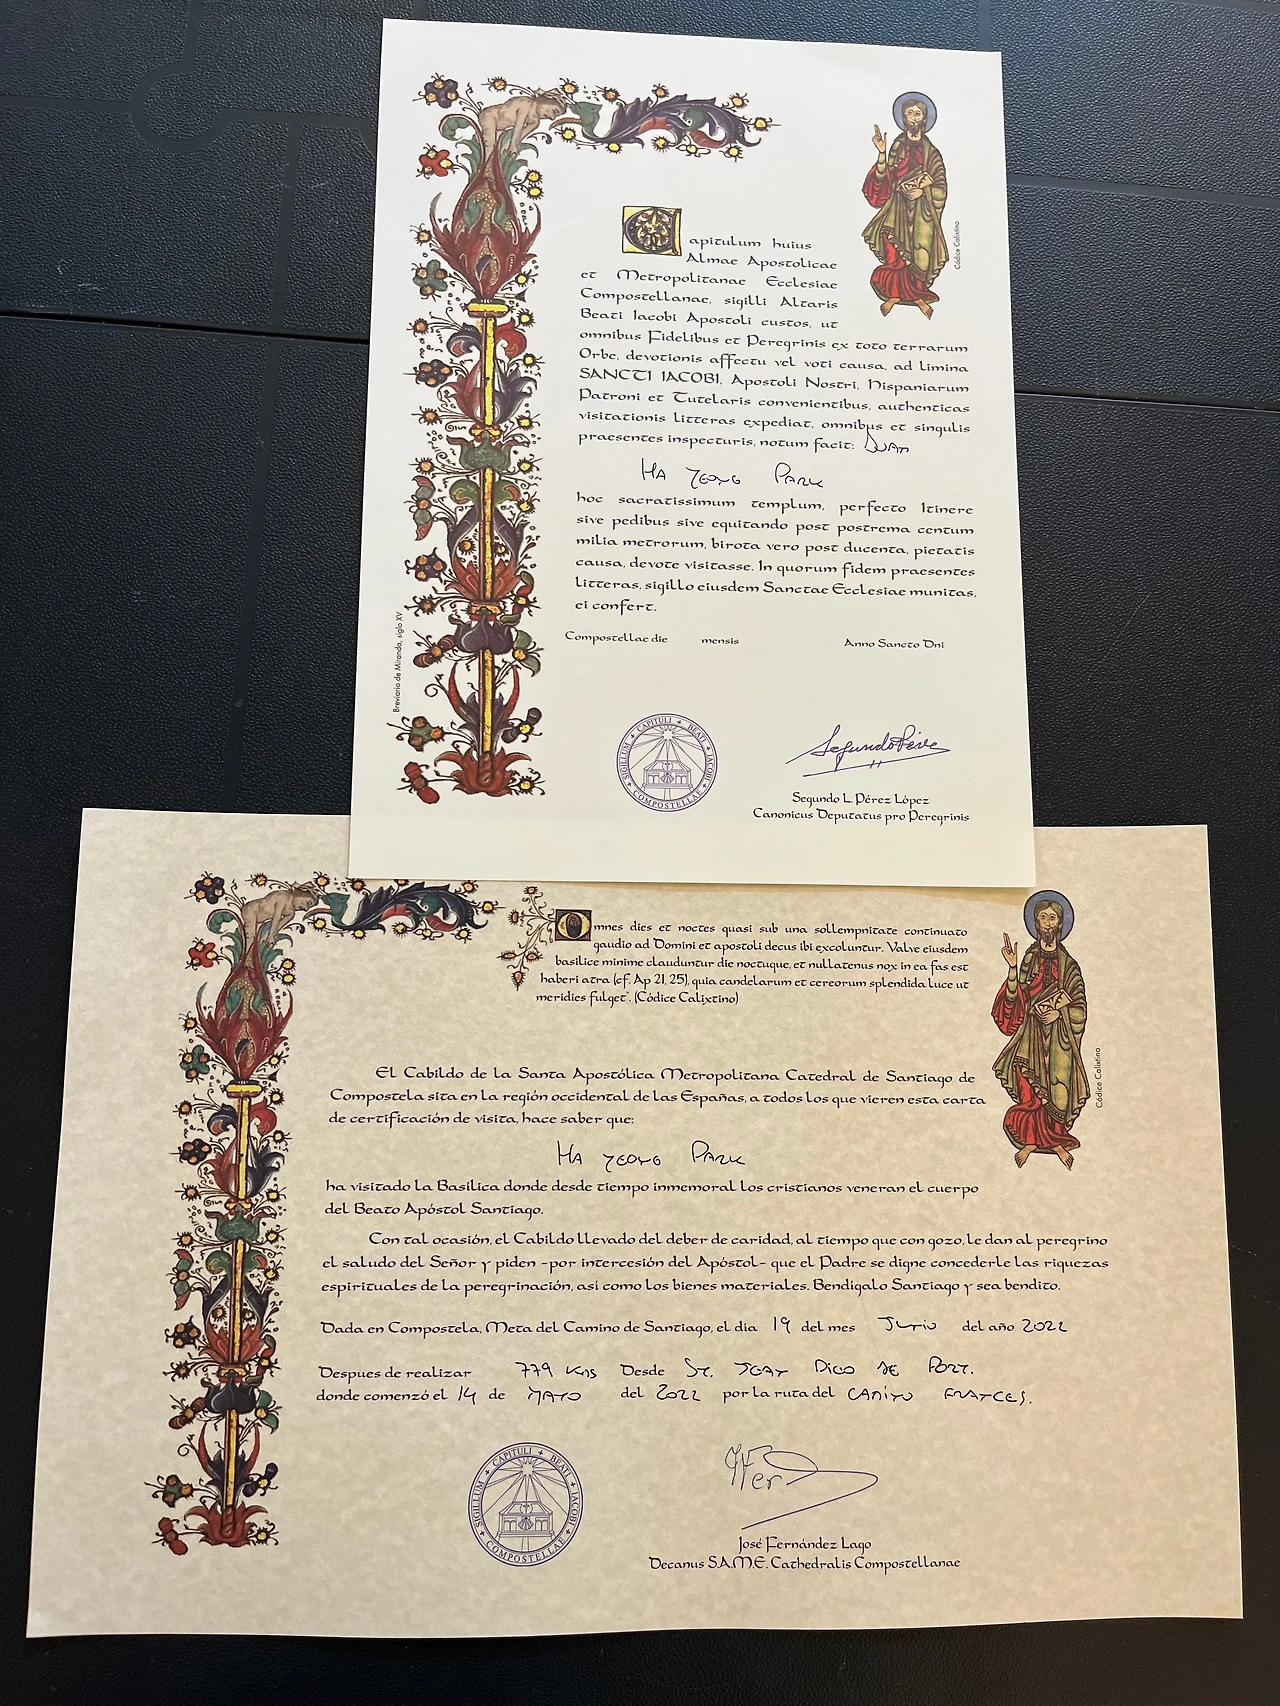 Capitulum huius
Almae Apostolicae
et Metropolitanae Ecclesiae
Compostellanae, sigilli Altaris
Beati Iacobi Apostoli custos, ut
omnibus Fidelibus et Peregrinis ex toto terrarum
Orbe, devotionis affectu vel voti causa, ad limina
SANCTI IACOBI, Apostoli Nostri, Hispaniarum
Patroni et Tutelaris convenientibus, authenticas
visitationis litteras expediat, omnibus et singulis
praesentes inspecturis, notum facit:
HA YEONG PARK
hoc sacratissimum templum, perfecto Itinere
sive pedibus sive equitando post postrema centum
milia metrorum, birota vero post ducenta, pietatis
causa, devote visitasse. In quorum fidem praesentes
litteras, sigillo eiusdem Sanctae Ecclesiae munitas,
ei confert.
Compostellae die mensis Anno Sancto Dni
Códice Calixtino
Breviario de Miranda, siglo XV
SIGILLUM + CAPITULI + BEATI + IACOBI + COMPOSTELLAE +
Segundo Pérez
Segundo L. Pérez López
Canonicus Deputatus pro Peregrinis
Omnes dies et noctes quasi sub una sollempnitate continuato
gaudio ad Domini et apostoli decus ibi excoluntur. Valve eiusdem
basilice minime clauduntur die noctuque, et nullatenus nox in ea fas est
haberi atra (cf. Ap 21, 25), quia candelarum et cereorum splendida luce ut
meridies fulget". (Códice Calixtino)
Códice Calixtino
El Cabildo de la Santa Apostólica Metropolitana Catedral de Santiago de
Compostela sita en la región occidental de las Españas, a todos los que vieren esta carta
de certificación de visita, hace saber que:
HA YEONG PARK
ha visitado la Basílica donde desde tiempo inmemorial los cristianos veneran el cuerpo
del Beato Apóstol Santiago.
Con tal ocasión, el Cabildo llevado del deber de caridad, al tiempo que con gozo, le dan al peregrino
el saludo del Señor y piden -por intercesión del Apóstol- que el Padre se digne concederle las riquezas
espirituales de la peregrinación, así como los bienes materiales. Bendígalo Santiago y sea bendito.
Dada en Compostela, Meta del Camino de Santiago, el día 19 del mes JUNIO del año 2022
Despues de realizar 779 KMS Desde ST. JEAN PIED DE PORT.
donde comenzó el 14 de MAYO del 2022 por la ruta del CAMINO FRANCES.
SIGILLUM + CAPITULI + BEATI + IACOBI + COMPOSTELLAE +
José Fernández Lago
Decanus S.A.M.E. Cathedralis Compostellanae